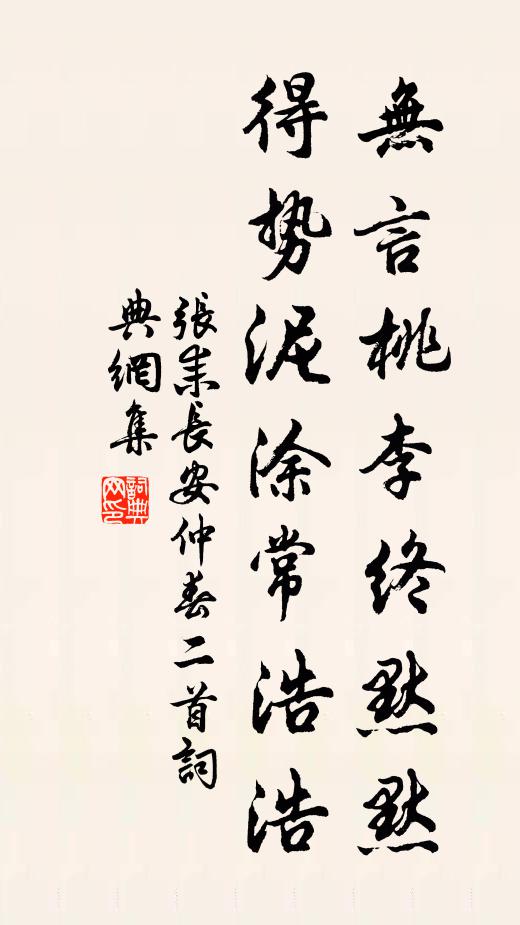 無言桃李終默默
得势泥涂常浩浩
張耒長安仲春二首詞
典網集
詞典
网印